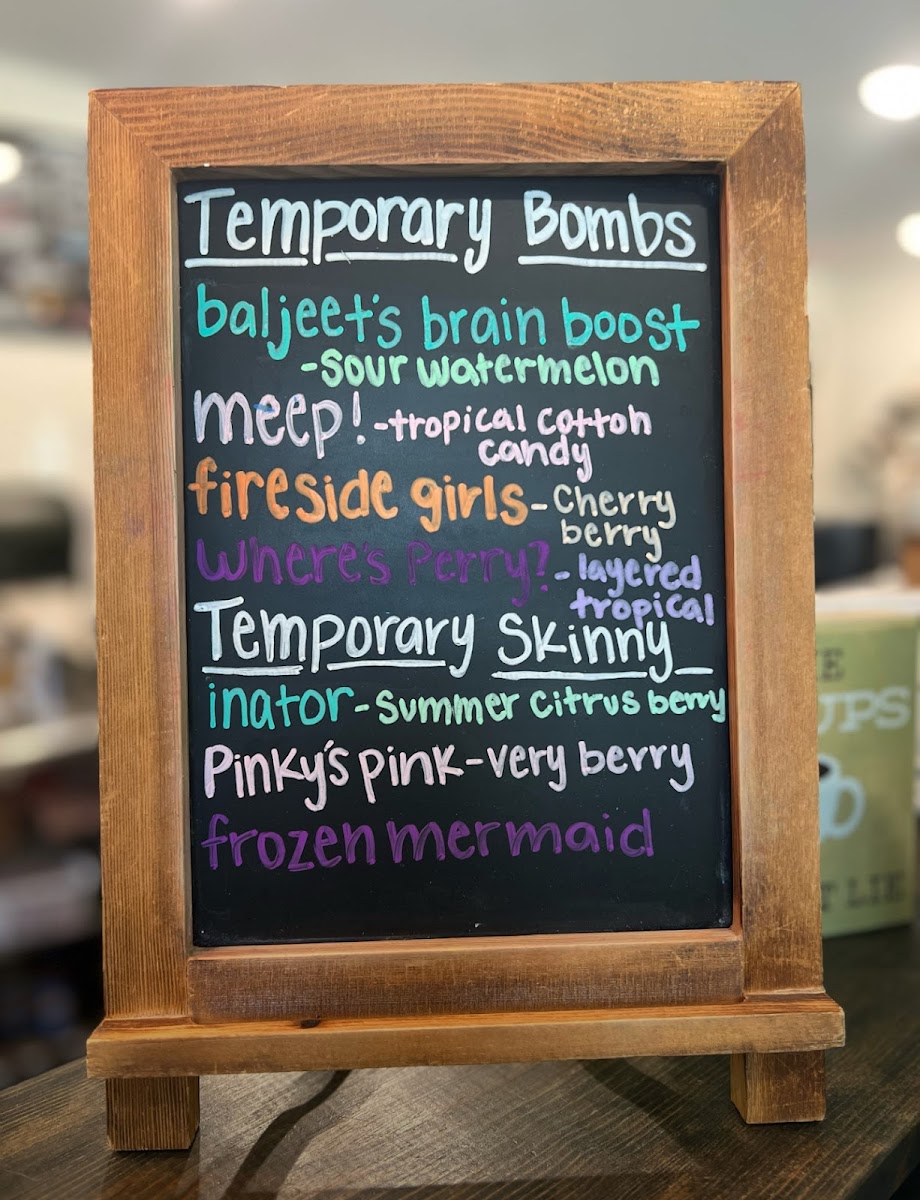 Temporary Bombs
baljeet's brain boost
-sour watermelon
meep! -tropical cotton
candy
fireside girls - Cherry
berry
Where's Perry? - layered
tropical
Temporary Skinny
inator - Summer Citrus berry
Pinky's pink - very berry
frozen mermaid
UPS
LIE